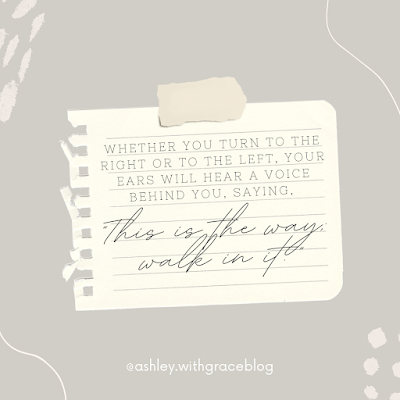 WHETHER YOU TURN TO THE
RIGHT OR TO THE LEFT, YOUR
EARS WILL HEAR A VOICE
BEHIND YOU, SAYING,
"This is the way;
walk in it."
@ashley.withgraceblog